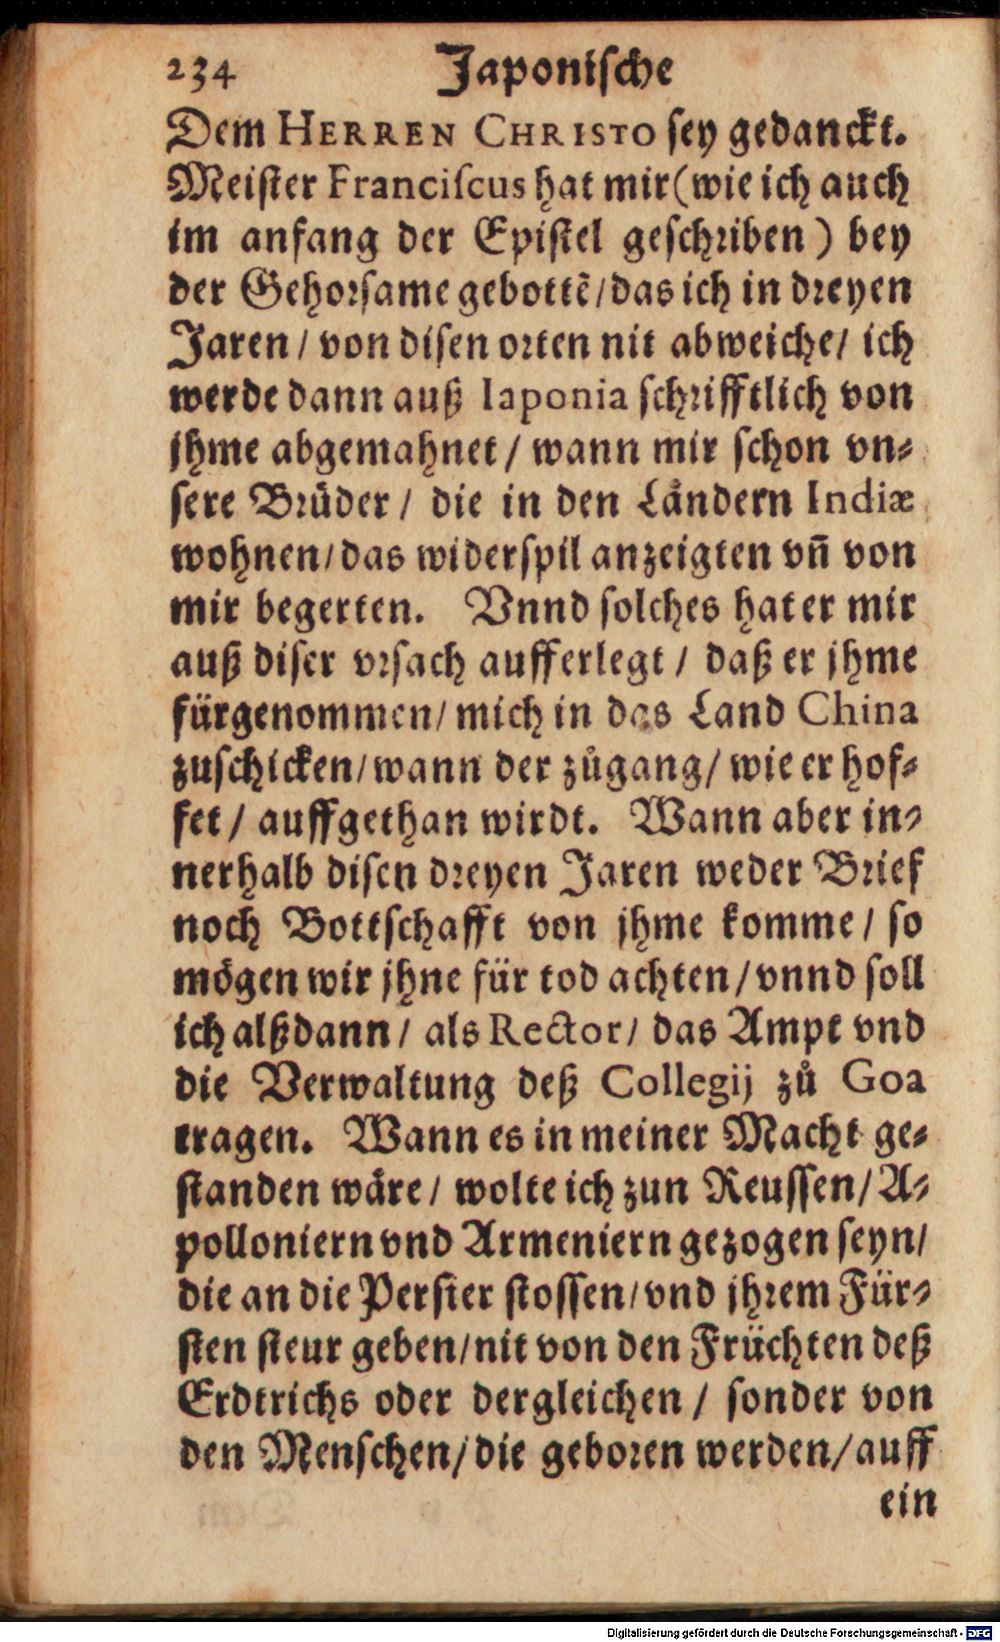 234 Japonische
Dem HERREN CHRISTO sey gedanckt.
Meister Franciscus hat mir (wie ich auch
im anfang der Epistel geschriben) bey
der Gehorsame gebottẽ/das ich in dreyen
Jaren/ von disen orten nit abweiche/ ich
werde dann auß Iaponia schrifftlich von
jhme abgemahnet/ wann mir schon vn⸗
sere Brüder/ die in den Laͤndern Indiæ
wohnen/das widerspil anzeigten vñ von
mir begerten. Vnnd solches hat er mir
auß diser vrsach aufferlegt/ daß er jhme
fürgenommen/ mich in das Land China
zuschicken/wann der zůgang/ wie er hof⸗
fet/ auffgethan wirdt. Wann aber in⸗
nerhalb disen dreyen Jaren weder Brief
noch Bottschafft von jhme komme/ so
moͤgen wir jhne für tod achten/vnnd soll
ich alßdann/ als Rector/ das Ampt vnd
die Verwaltung deß Collegij zů Goa
tragen. Wann es in meiner Macht ge⸗
standen waͤre/ wolte ich zun Reussen/A⸗
polloniern vnd Armeniern gezogen seyn/
die an die Persier stossen/vnd jhrem Für⸗
sten steur geben/nit von den Früchten deß
Erdtrichs oder dergleichen/ sonder von
den Menschen/die geboren werden/auff
ein
Digitalisierung gefördert durch die Deutsche Forschungsgemeinschaft - DFG